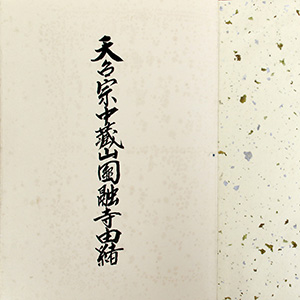 天台宗中藏山圓融寺由緒